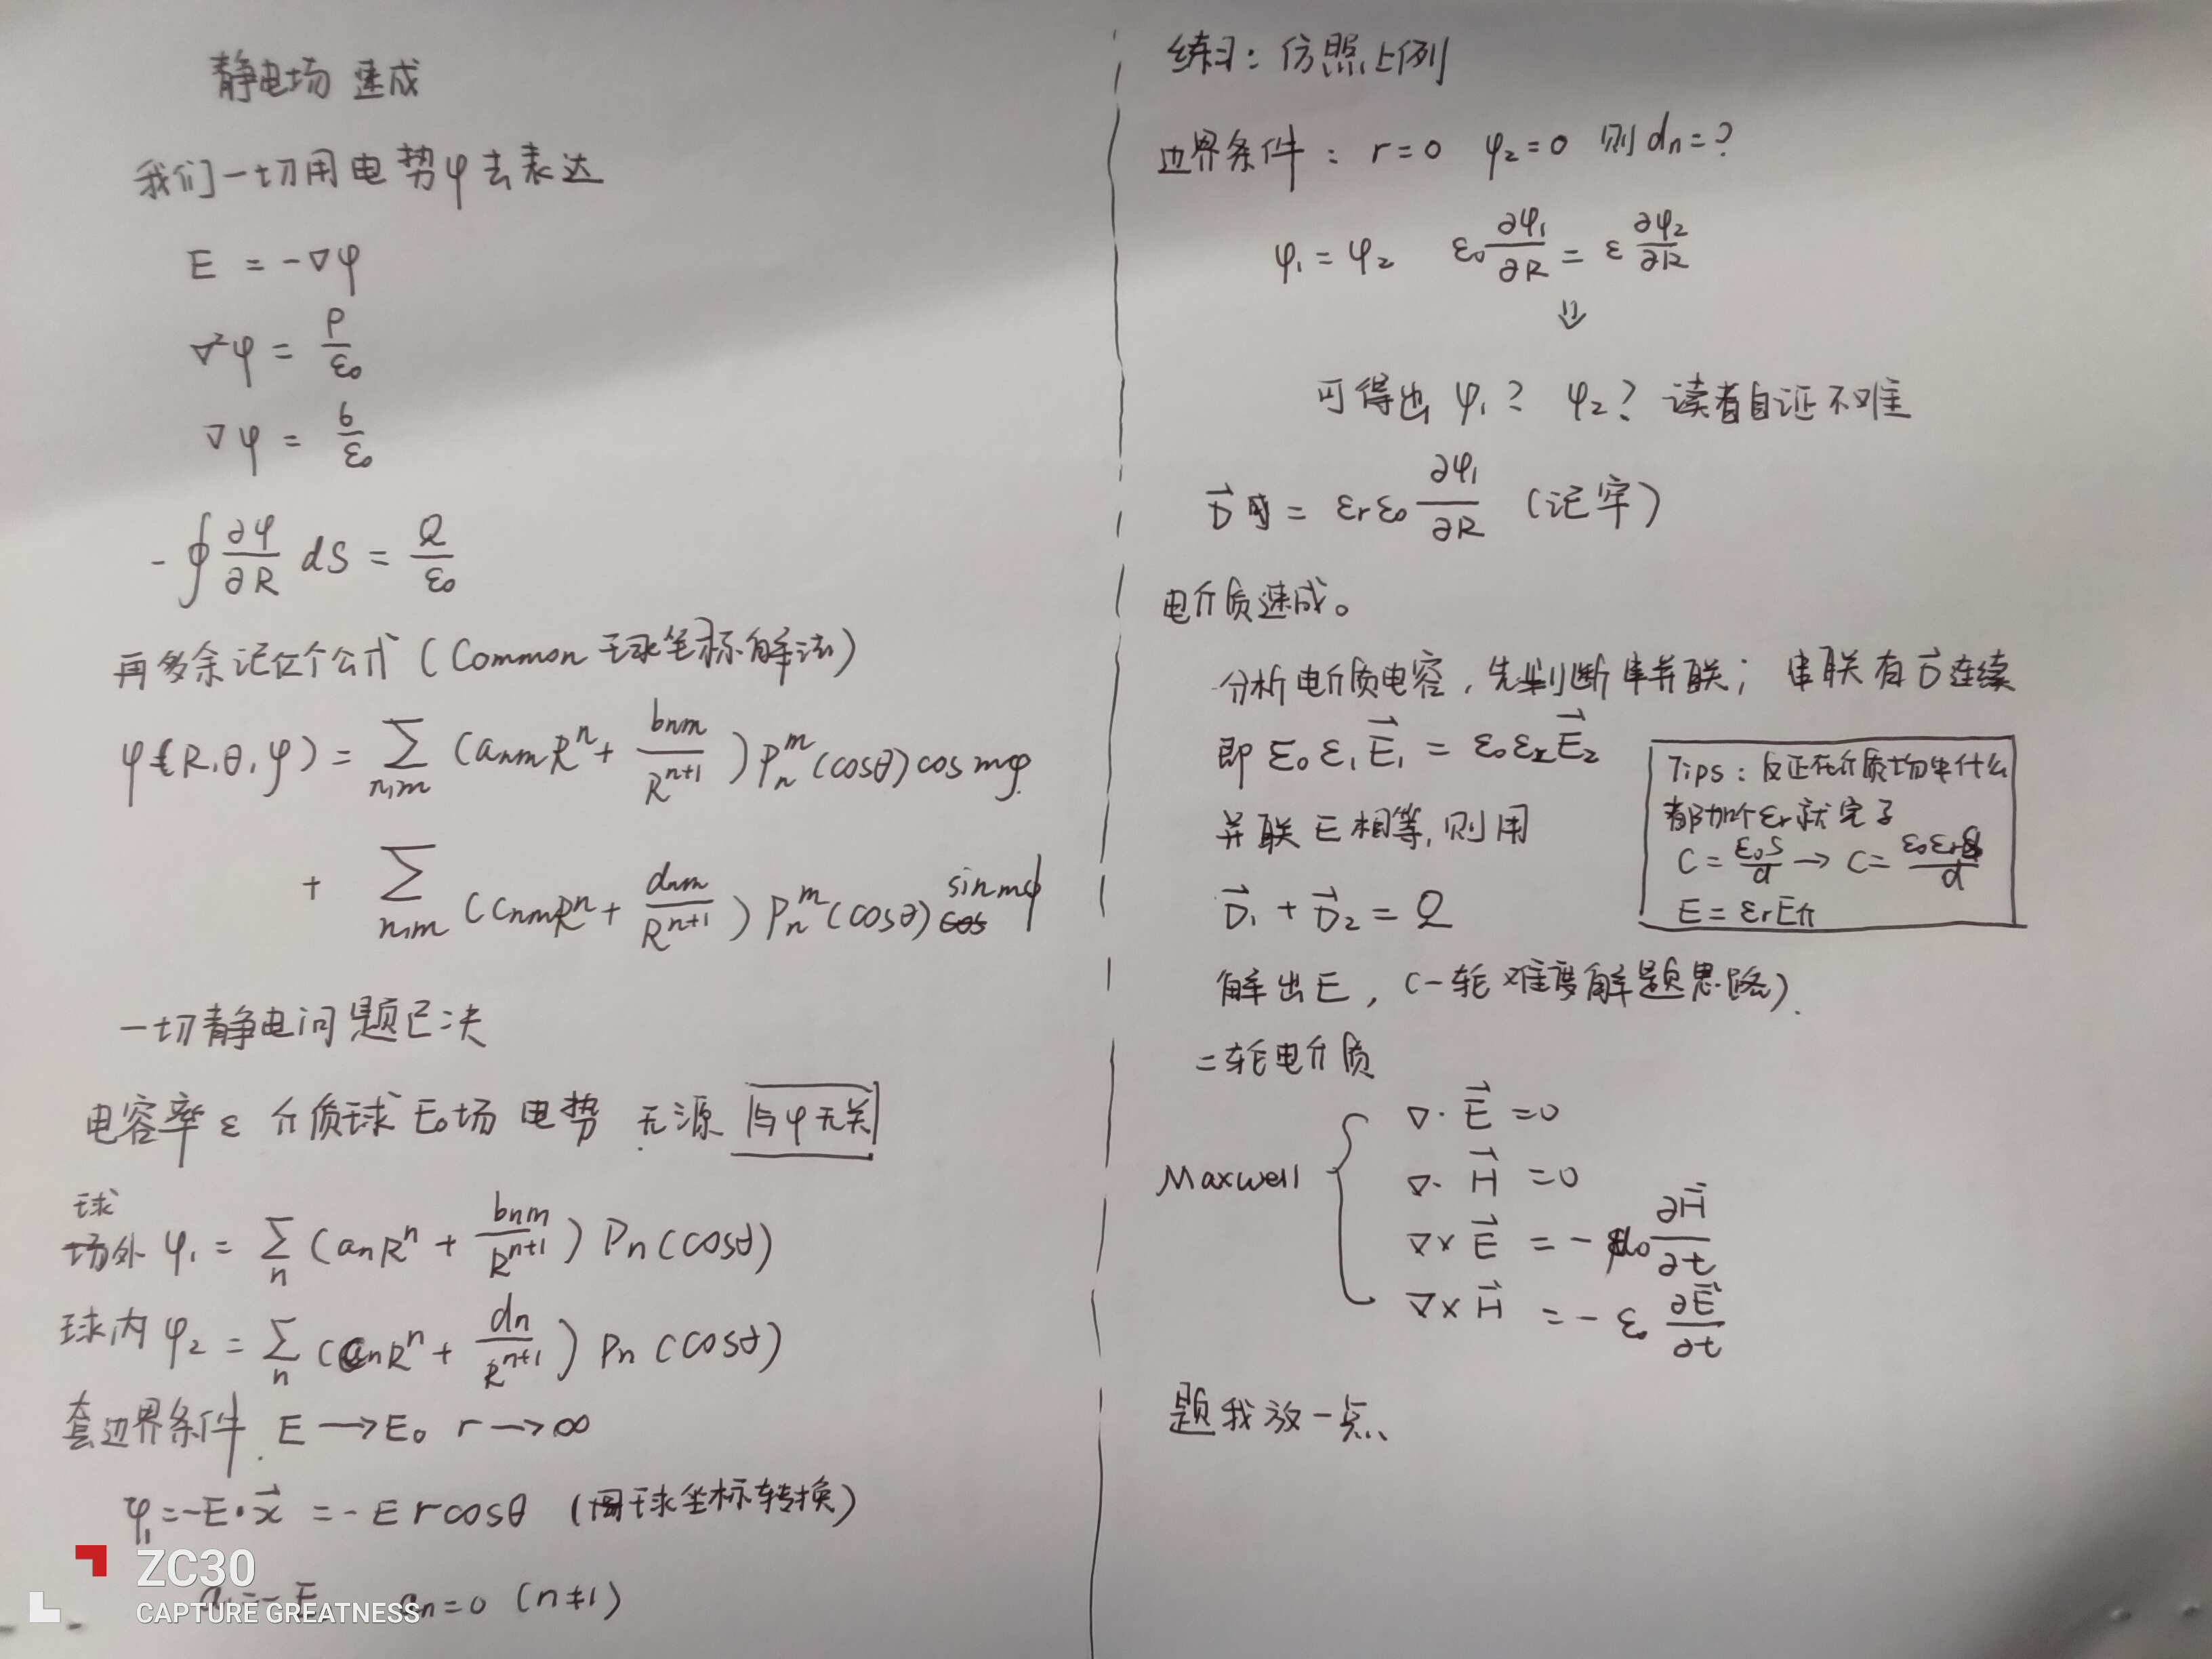 静电场 速成
我们一切用电势φ去表达
E = -∇φ
∇²φ = ρ/ε₀
∇φ = σ/ε₀
-∮ ∂φ/∂R dS = Q/ε₀
再多余记忆个公式 (Common 球坐标解法)
φ(R,θ,φ) = ∑n,m (anmRⁿ + bnm/Rⁿ⁺¹) Pₙᵐ(cosθ) cos mφ
+ ∑n,m (cnmRⁿ + dnm/Rⁿ⁺¹) Pₙᵐ(cosθ) sin mφ
一切静电问题已决
电容率 ε 介质球 E₀场 电势 无源 与φ无关
球外 φ₁ = ∑n (anRⁿ + bnm/Rⁿ⁺¹) Pn(cosθ)
球内 φ₂ = ∑n (cnRⁿ + dn/Rⁿ⁺¹) Pn(cosθ)
套边界条件. E → E₀ r → ∞
φ₁ = -E·x⃗ = -E r cosθ (用球坐标转换)
a₁ = -E an = 0 (n≠1)
练习: 仿照上例
边界条件: r=0 φ₂=0 则 dn=?
φ₁ = φ₂ ε₀ ∂φ₁/∂R = ε ∂φ₂/∂R
⇓
可得出 φ₁? φ₂? 读者自证不难
D⃗ = εrε₀ ∂φ₁/∂R (记牢)
电介质速成。
分析电介质电容, 先判断串并联; 串联有D⃗连续
即 ε₀ε₁E⃗₁ = ε₀ε₂E⃗₂
并联 E 相等, 则用
D⃗₁ + D⃗₂ = Q
解出E, (一轮难度解题思路).
Tips: 反正在介质场中什么
都加个εr就完了
C = ε₀S/d → C = ε₀εrS/d
E = εrE介
二轮电介质
Maxwell
∇·E⃗ = 0
∇·H⃗ = 0
∇×E⃗ = -μ₀ ∂H⃗/∂t
∇×H⃗ = -ε₀ ∂E⃗/∂t
题我放一点、
ZC30
CAPTURE GREATNESS